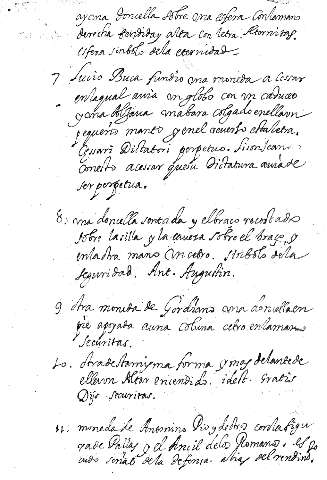 arena doncella sobre una esfera con la mano
derecha tendida y alta con letra Æternitas.
esfera simbolo de la eternidad.
7 Lucio Buca fundio una moneda a cesar
en la qual avia un globo con un caduceo
y una
pequeño manto y en el acuerto esta letra.
Cesari Dictatori perpetuo.
a cessar que su Dictatura avia de
ser perpetua.
8. una doncella sentada y el braço recostado
sobre la silla y la caveza sobre el braço, y
en la otra mano un cetro. simbolo de la
seguridad. Ant. Augustin.
9 otra moneda de Gordiano una doncella en
pie apoyada a una coluna cetro en la mano
securitas.
10. otra de la misma forma y mas delante de
ella un Altar encendido. idest. gratis
Dijs securitas.
11. moneda de Antonino Pio y dotro con la figu
ra de Palas y el Ancil de los Romanos. es
cudo señal de la defensa